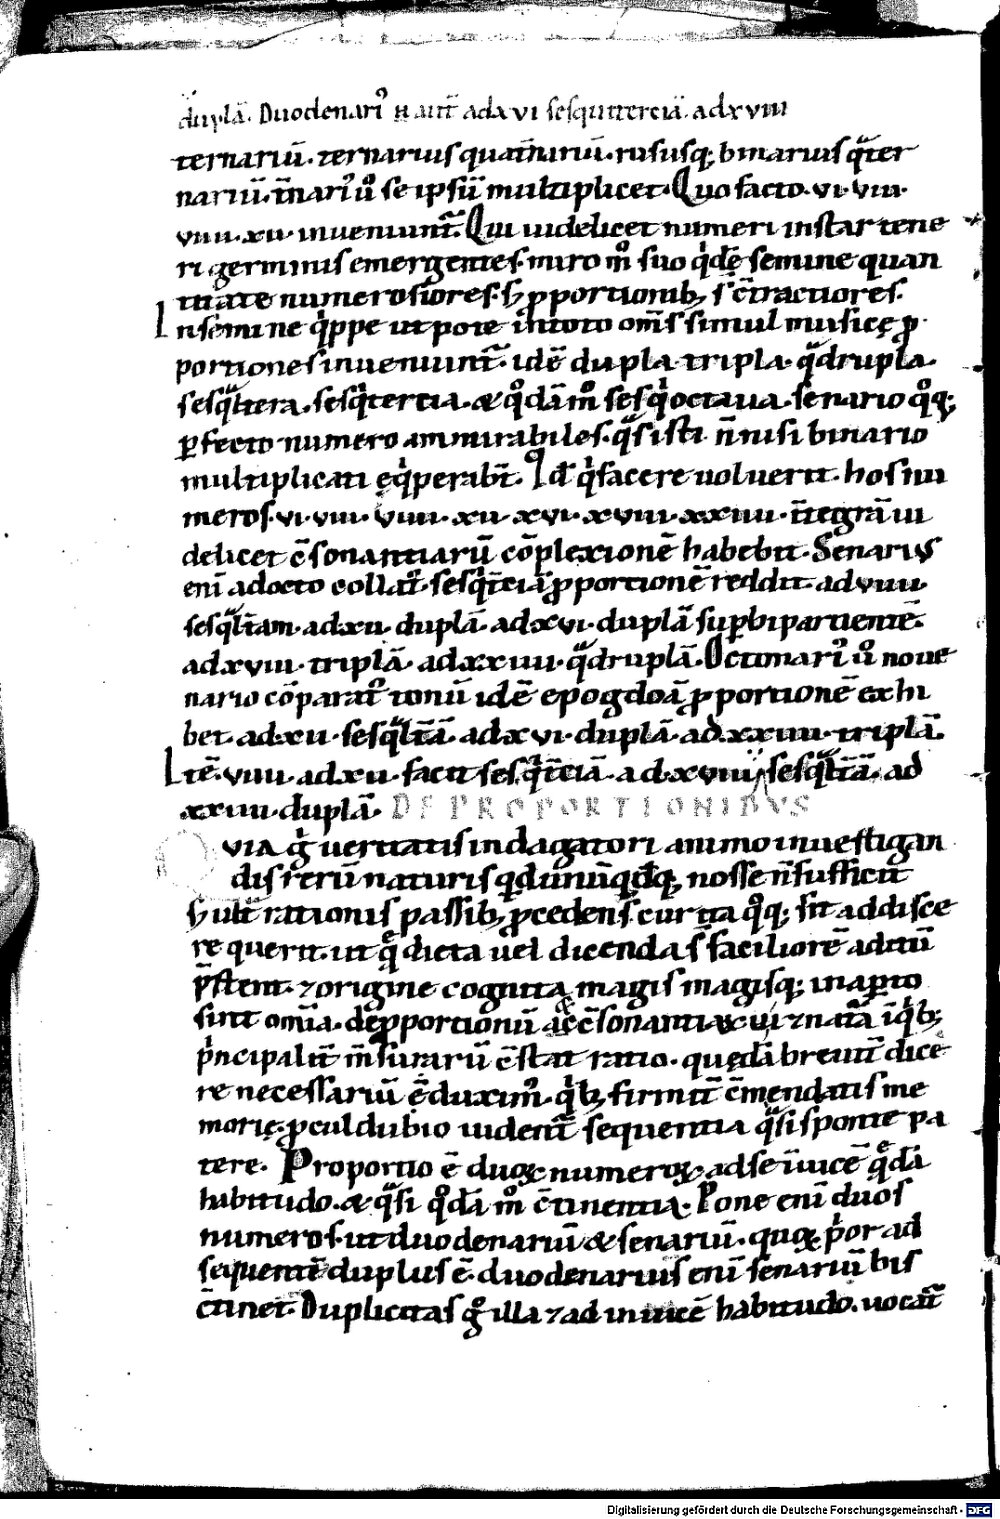 duplā. Duodenari᷒ ħ aut̄ ad xvi sesquiterciā. ad xviii
ternariū. ternarius quat̄nariū. rususq; binarius qͣter
nariū. t̄nari᷒ uͦ se ipsū multiplicet. Quo facto. vi. viii.
viiii. xii. inueniunt᷑. Qui uidelicet numeri instar tene
ri germinis emergentes. miro mͦ suo qͥdē semine quan
titate numerosiores. sꝫ ꝓportionibꝫ s̄ c̄tractiores.
In semine qͥppe utpote in toto om̄s simul musicę ꝓ
portiones inueniunt᷑. idē dupla. tripla. qͣdrupla.
sesqͣltera. sesqͥtercia. & qͦdā mͦ sesqͥoctaua. senario qͦq;
ꝑfecto numero ammirabiles. qͣsi isti n̄ nisi binario
multiplicati eqͥperabt̄. Id qͥ facere uoluerit. hos nu
meros. vi. viii. viiii. xii. xvi. xviii. xxiiii. īt̄egrā ui
delicet c̄sonantiarū cōplexionē habebit. Senarius
eni ad octo collat᷒. sesqͥt̄ciā ꝓportionē reddit. ad viiii.
sesqͣlt̄am. ad xii. duplā. ad xvi. duplā suꝑbipartientē.
ad xviii. triplā. ad xxiiii. qͣdruplā. Octonari᷒ uͦ noue
nario cōparat᷒ tonū idē epogdoā ꝓportionē exhi
bet. ad xii. sesqͣlt̄ā. ad xvi. duplā. ad xxiiii. triplā.
Itē. viiii. ad xii. facit sesqͥt̄ciā. ad xviii sesqͣlt̄ā. ad
xxiiii. duplā. DE PROPORTIONIBVS
QVIA gͥ ueritatis indagatori animo inuestigan
dis rerū naturis qd unūqdq; nosse n̄ sufficit
sꝫ ult̄ rationis passibꝫ ꝓcedens cur ita qͦq; sit addisce
re querit. ut qͤ dicta uel dicenda s̄ faciliorē aditū
p̄stent. ⁊ origine cognita magis magisq; in aꝑto
sint om̄ia. de ꝓportionū ac c̄sonantiaꝝ ui ⁊ natā īqͥbꝫ
p̄ncipalit̄ m̄surarū c̄stat ratio. quędā breuit̄ dice
re necessariū ēē duxim᷒. qͥbꝫ firmit̄ c̄mendatis me
morię ꝓculdubio uident᷑ sequentia qͣsi sponte pa
tere. Proportio ē duoꝝ numeroꝝ ad se īuicē qͤdā
habitudo. & qͣsi qͦdā mͦ c̄tinentia. Pone eni duos
numeros. ut duodenariū & senariū. quoꝝ pͥor ad
sequentē duplus ē. duodenarius eni senariū bis
c̄tinet. Duplicitas gͦ illa ⁊ ad inuicē habitudo. uocat᷑
Digitalisierung gefördert durch die Deutsche Forschungsgemeinschaft - DFG